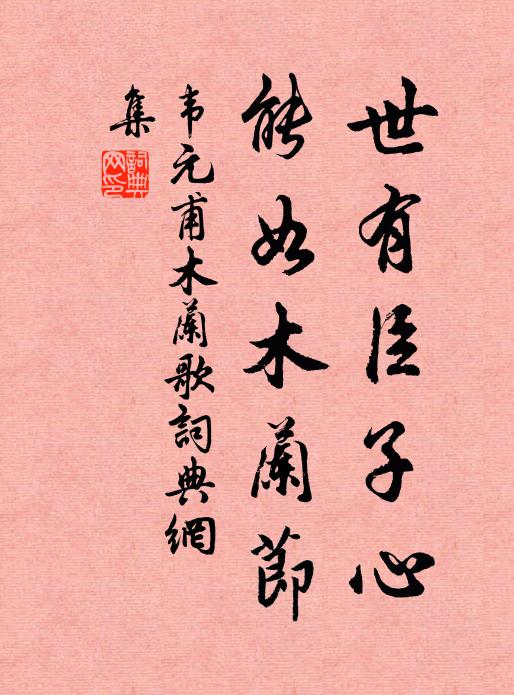 世有臣子心
能如木蘭節
韦元甫木蘭歌詞典網
集
詞典網印